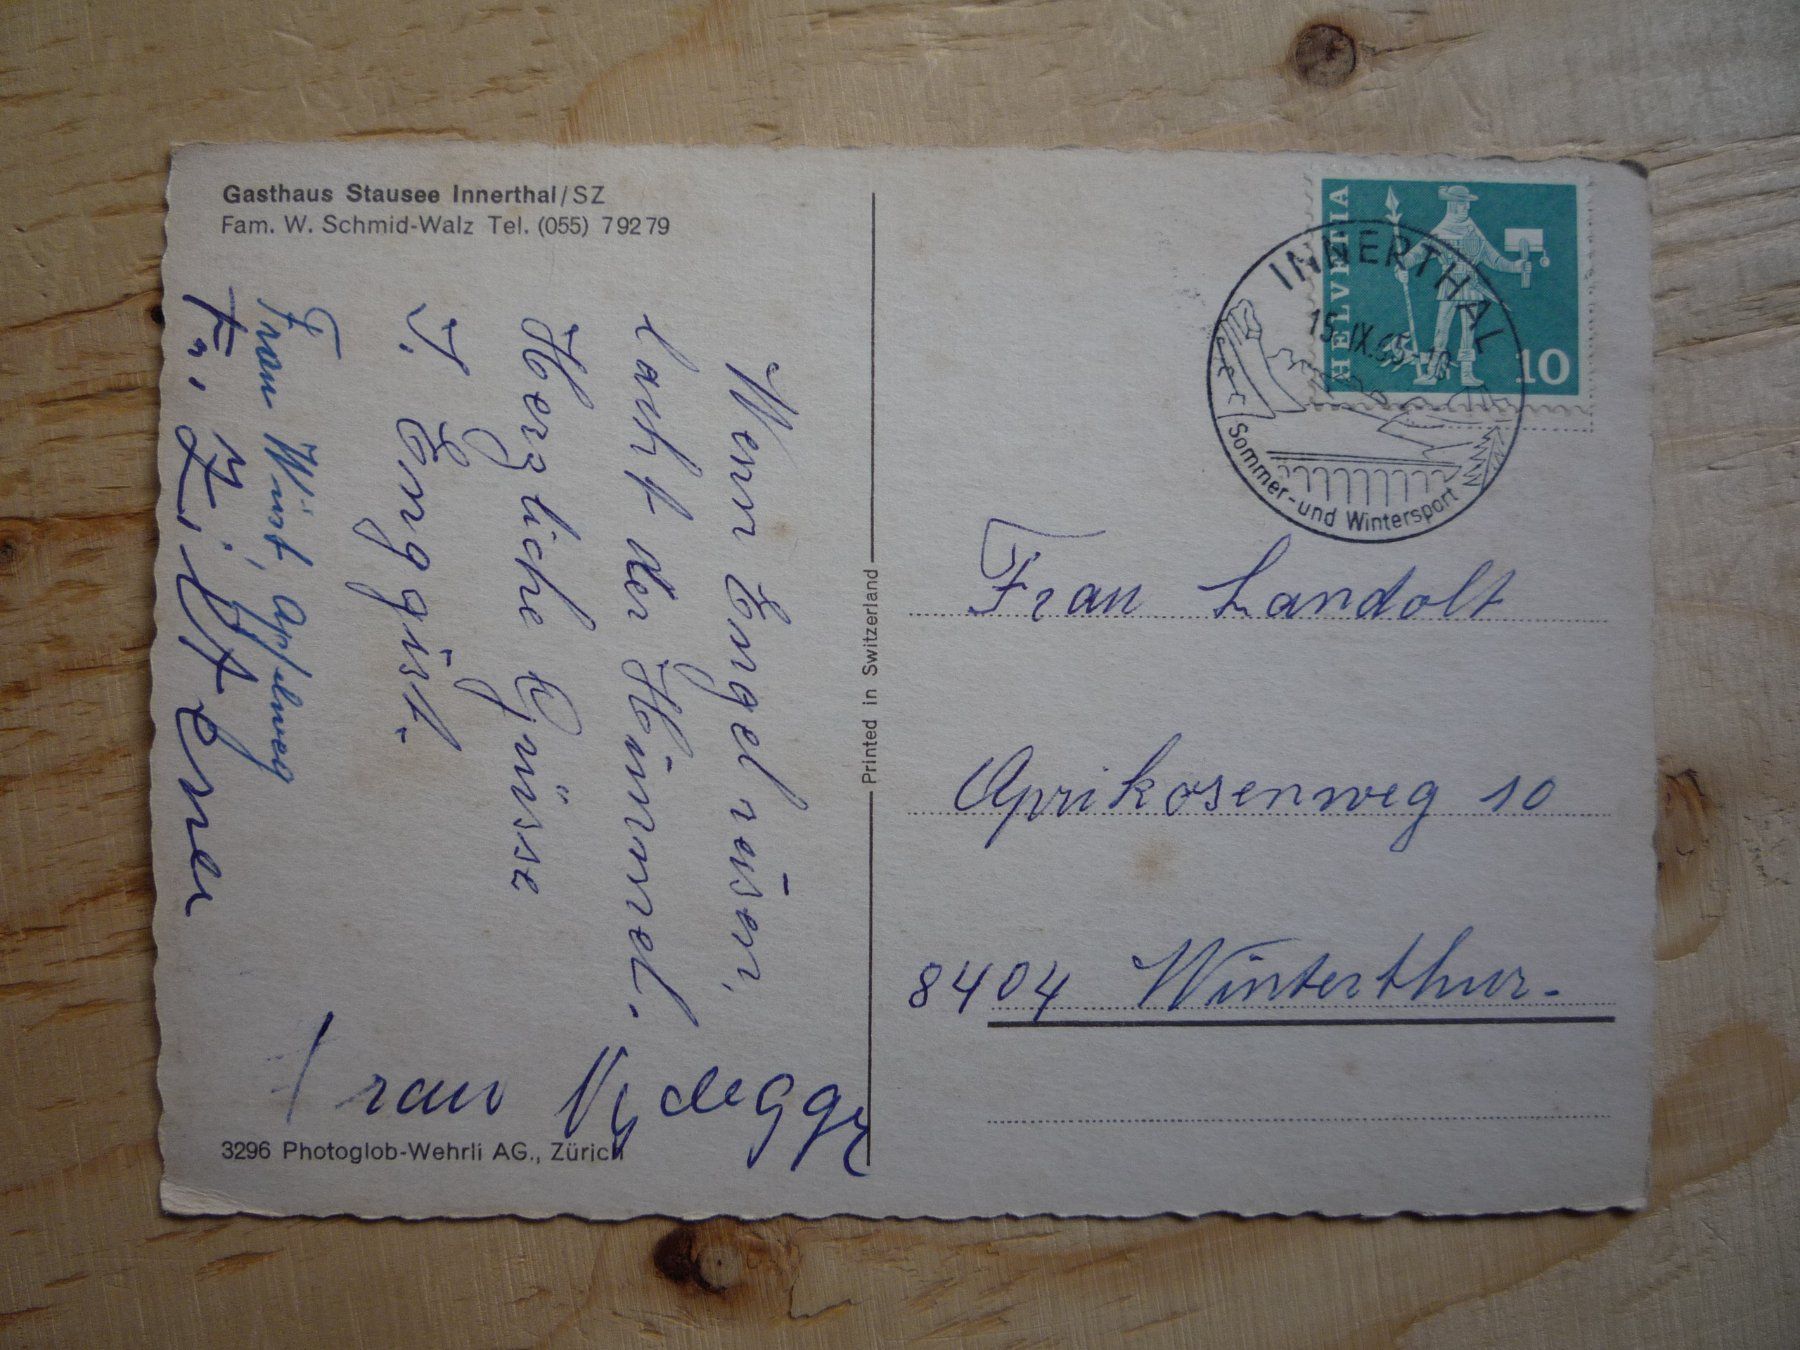 Gasthaus Stausee Innerthal/SZ
Fam. W. Schmid-Walz Tel. (055) 79279
Wenn Engel reisen,
lacht der Himmel.
Herzliche Grüsse
Frau Wüst, Apfelweg
Frau Nydegger
3296 Photoglob-Wehrli AG., Zürich
Printed in Switzerland
HELVETIA
10
INNERTHAL
Sommer-und Wintersport
Frau Landolt
Aprikosenweg 10
8404 Winterthur.